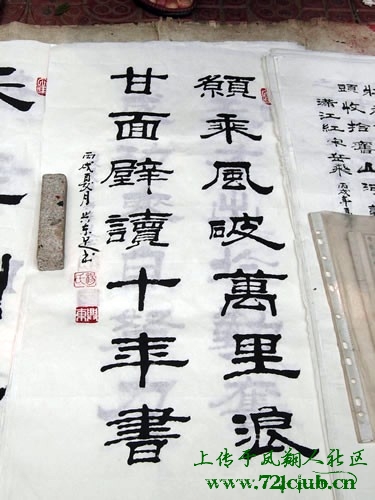 願乘風破萬里浪
甘面壁讀十年書
丙戌夏月
頭收拾舊山河
滿江紅 宋岳飛
上传于凤翔人社区
www.721club.cn